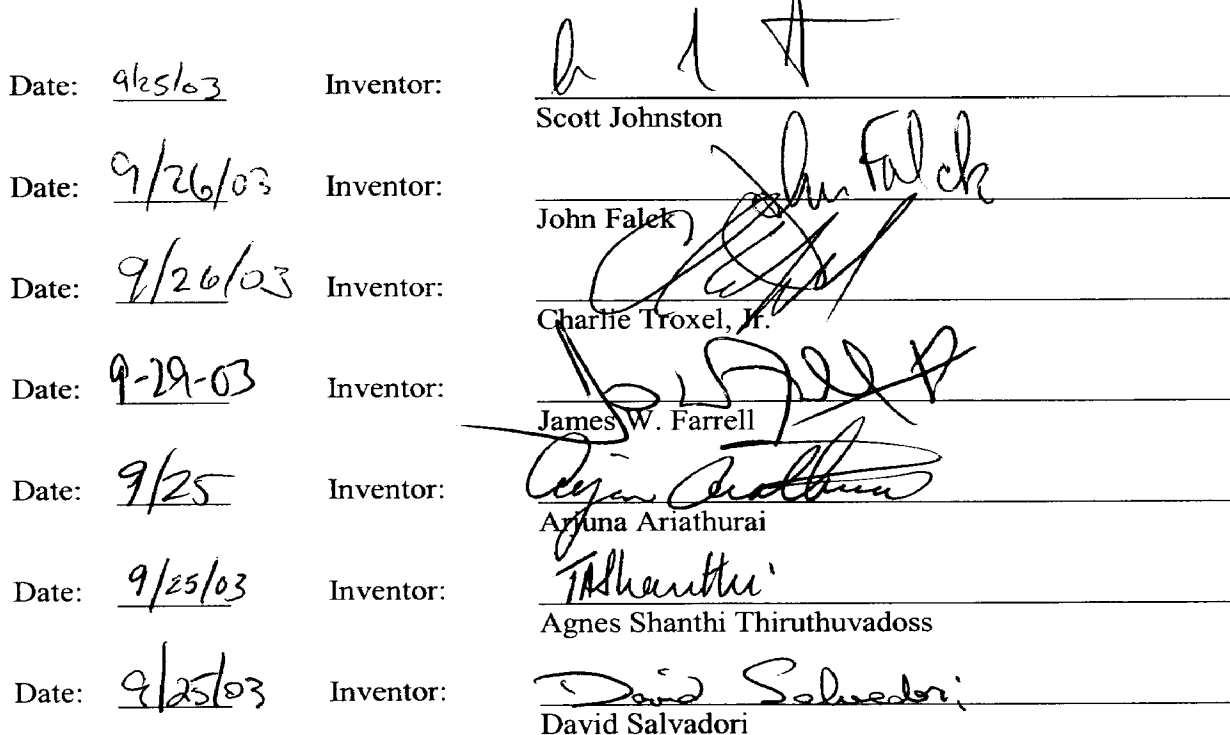 Date: 9/25/03 Inventor:
Scott Johnston
Date: 9/26/03 Inventor: John Falck
John Falck
Date: 9/26/03 Inventor:
Charlie Troxel, Jr.
Date: 9-29-03 Inventor:
James W. Farrell
Date: 9/25 Inventor: Arjuna Ariathurai
Arjuna Ariathurai
Date: 9/25/03 Inventor: TAShanthi
Agnes Shanthi Thiruthuvadoss
Date: 9/25/03 Inventor: David Salvadori
David Salvadori